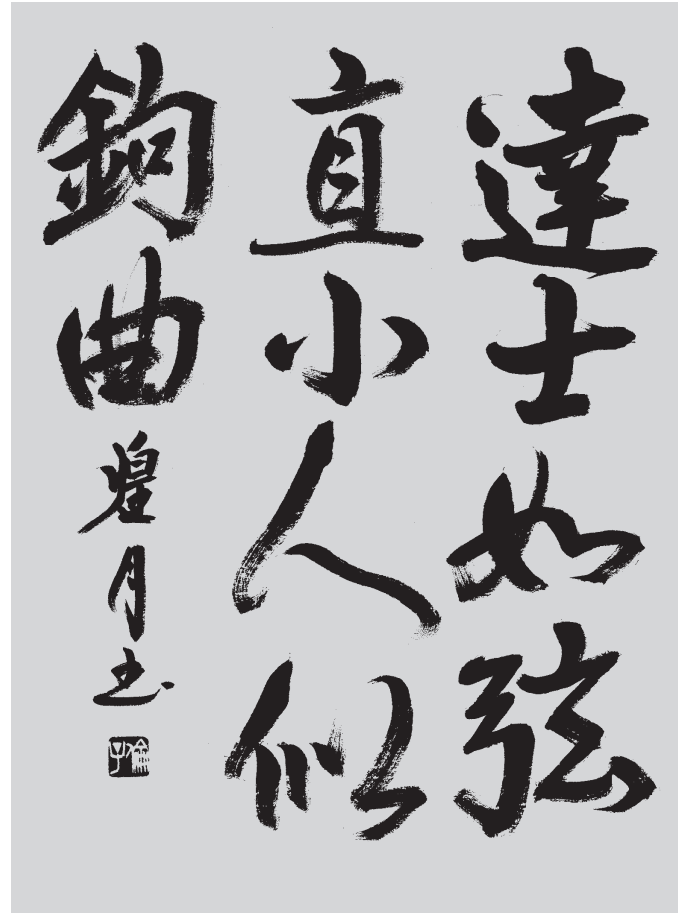 達士如弦
直小人似
鉤曲煌月